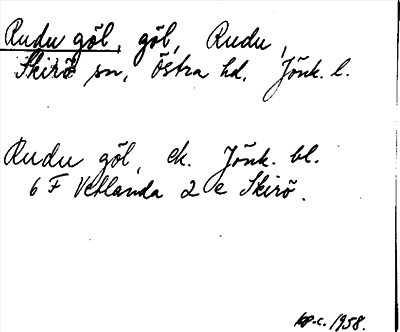 Rudu göl, göl, Rudu,
Skirö sn, Östra hd, Jönk. l.
Rudu göl, ek. Jönk. bl.
6 F Vetlanda 2 e Skirö.
kp.c. 1958.